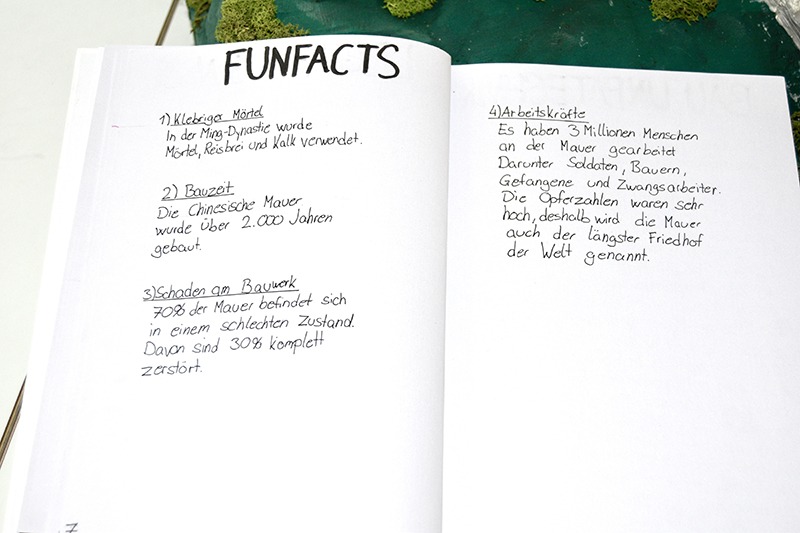 FUNFACTS
1) Klebriger Mörtel
In der Ming-Dynastie wurde
Mörtel, Reisbrei und Kalk verwendet.
2) Bauzeit
Die Chinesische Mauer
wurde über 2.000 Jahren
gebaut.
3) Schaden am Bauwerk
70% der Mauer befindet sich
in einem schlechten Zustand.
Davon sind 30% komplett
zerstört.
7
4) Arbeitskräfte
Es haben 3 Millionen Menschen
an der Mauer gearbeitet
Darunter Soldaten, Bauern,
Gefangene und Zwangsarbeiter.
Die Opferzahlen waren sehr
hoch, deshalb wird die Mauer
auch der längster Friedhof
der Welt genannt.